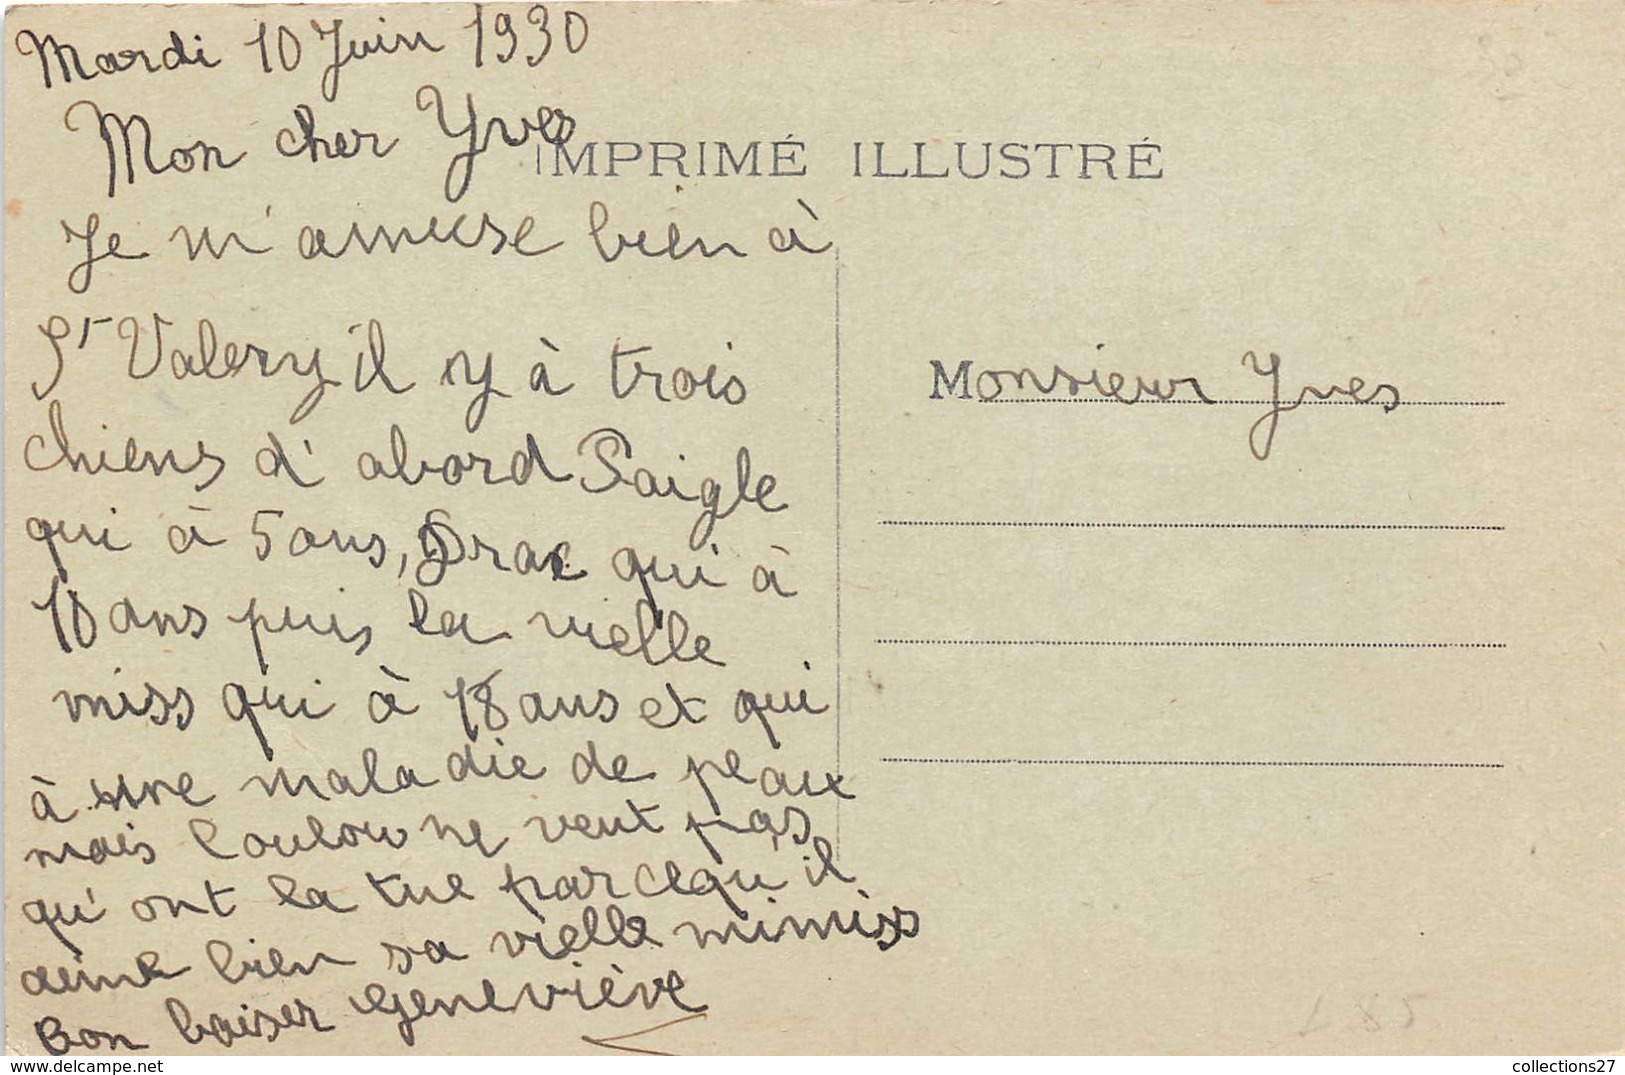 Mardi 10 Juin 1930
Mon cher Yves
IMPRIMÉ ILLUSTRÉ
Je m'amuse bien à
St Valery il y à trois
chiens d'abord Saigle
qui à 5 ans, Drac qui à
10 ans puis la vielle
miss qui à 18 ans et qui
à une maladie de peaux
mais loulou ne veut pas
qu'ont la tue parcequ'il
aime bien sa vielle mimiss
Bon baiser Geneviève
Monsieur Yves
www.delcampe.net
collections27